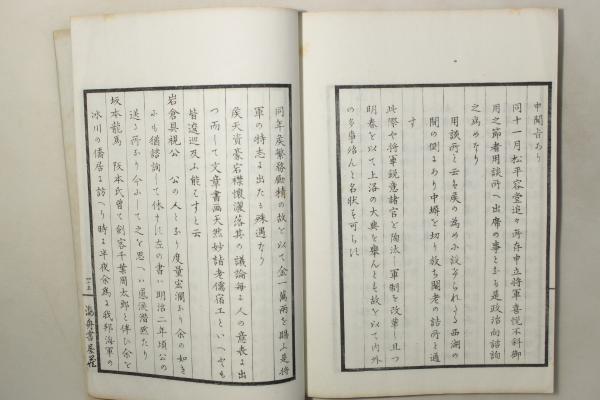 中聞旨あり
同十一月松平容堂追々所存申立将軍喜悦不斜御
用之節者用談所へ出席の事とある是政治向諮詢
之為めなり
用談所と云ふ者之為め小設せられたる西湖の
間の側にあり中蟵を切り放ち閣老の詰所と通
す
此際や将軍鋭意諸官を陶汰し軍制を改革し且つ
明春を以て上洛の大典を挙んとす故を以て内外
の多事殆んと名状を可らす
同年矦業務励精の故を以て金一萬両を賜ふ是将
軍の特志に出たる殊遇なり
矦天資豪宕襟懐灑落其の議論毎に人の意表に出
つ而して文章書画天然妙諸老儒宿工といへとも
皆逡巡及ふ能はすと云
岩倉具視公　公の人となり度量宏濶にして余の如き
にも猶諮詢して休ます左の書ハ明治二年頃公の
送る所なり今にして之を思へハ恩渥潸然たり
坂本龍馬　阪本氏曽て剣客千葉周太郎と伴ひ余を
氷川の僑居に訪へり時に半夜余為に我邦海軍の
海舟書屋蔵